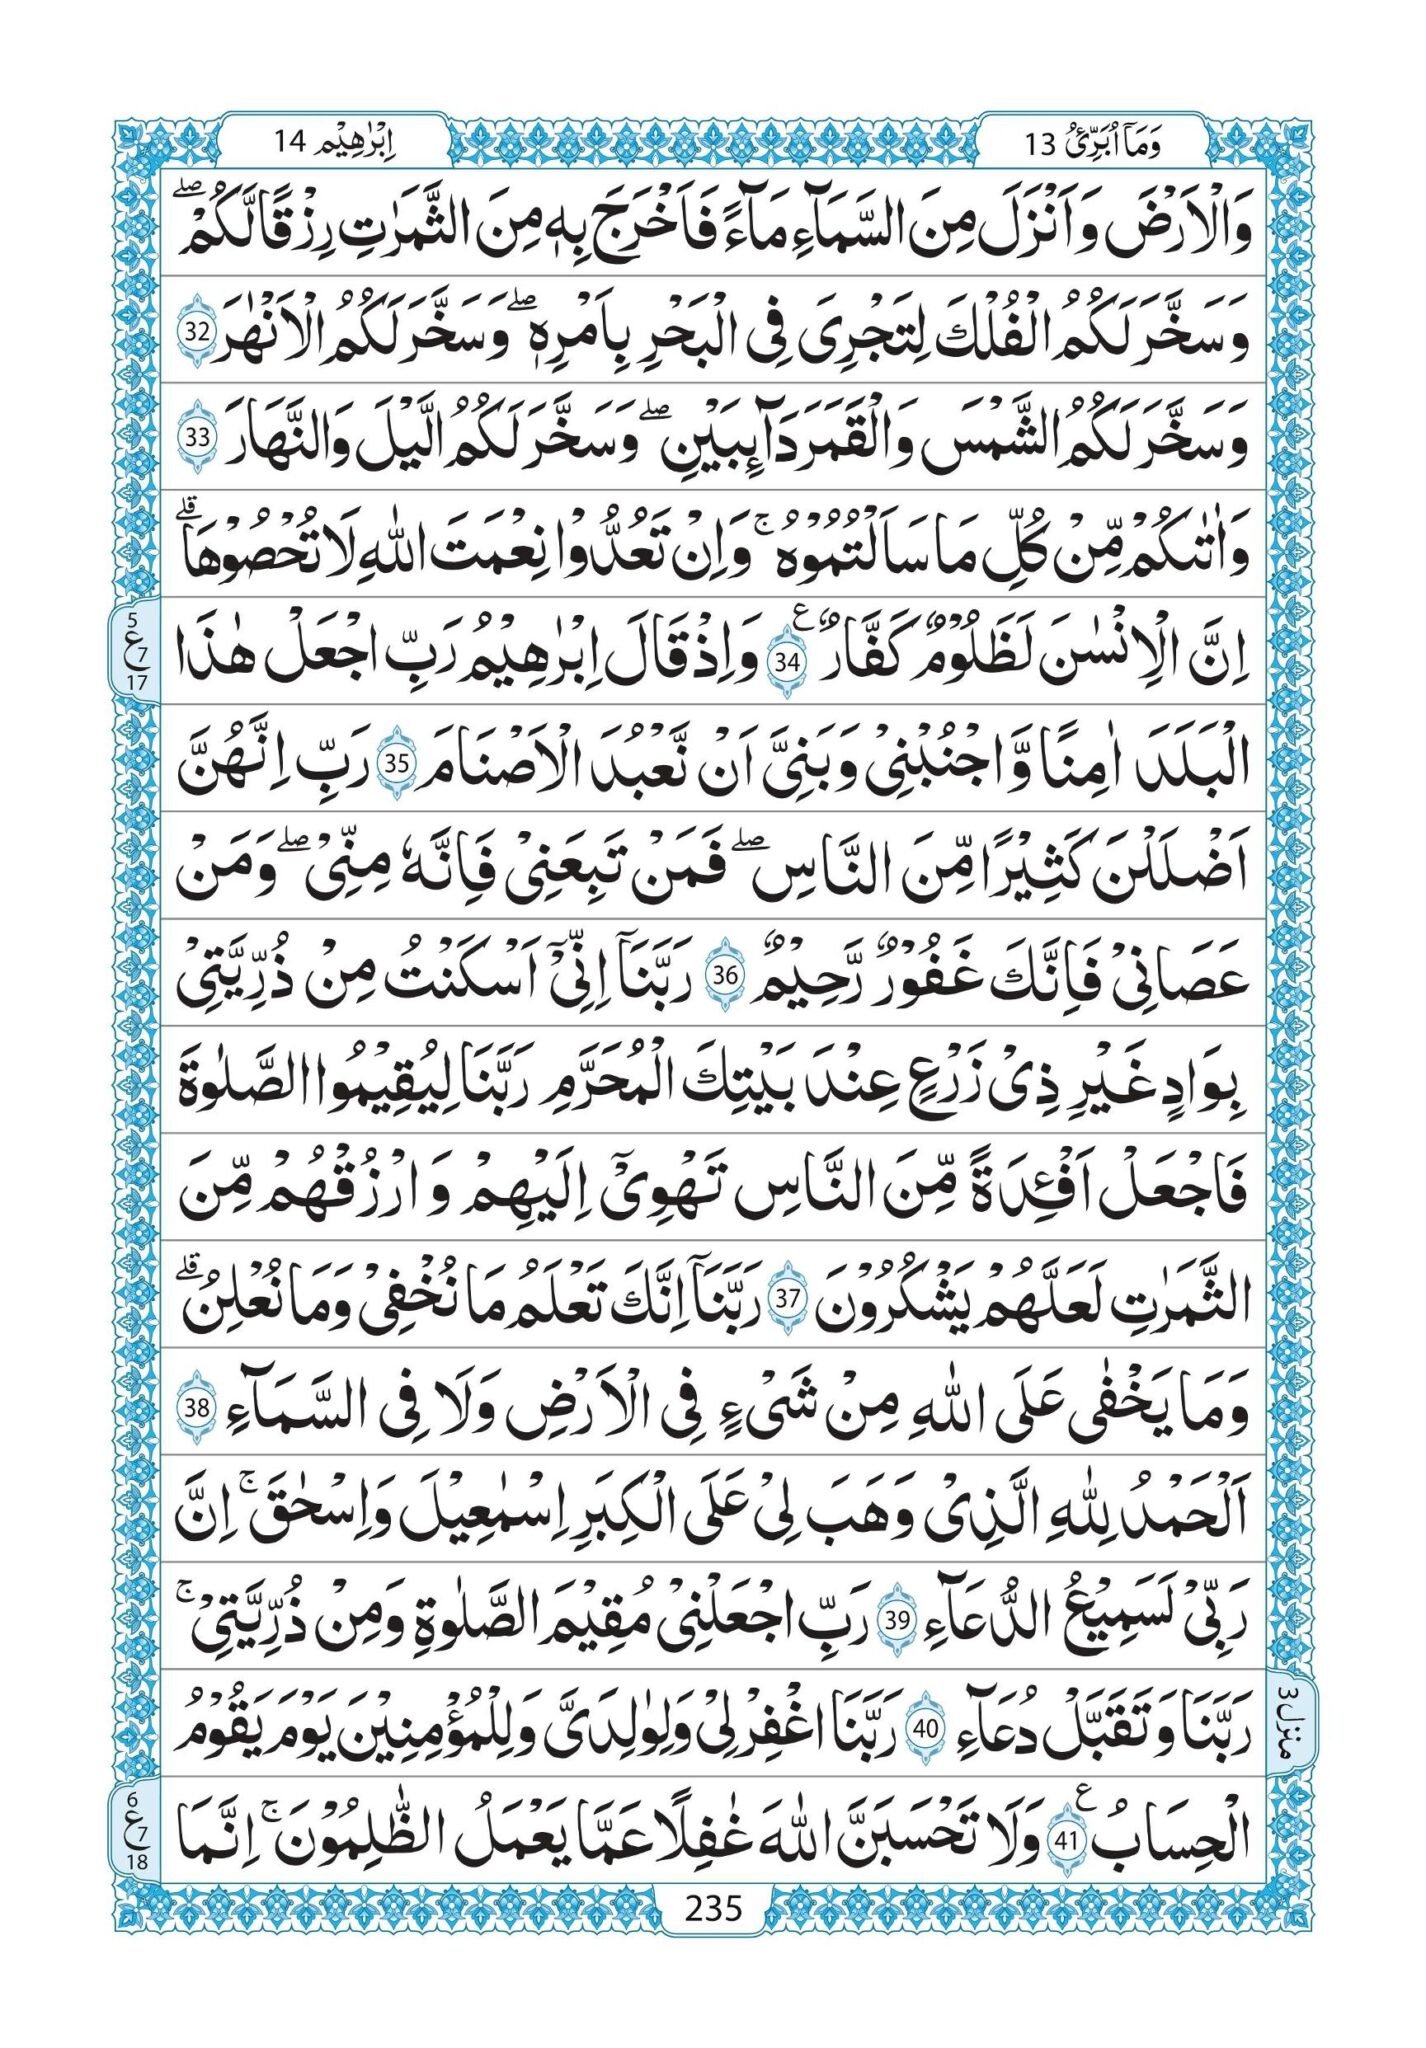 وَمَآ اُبَرِّئُ 13
اِبْرٰهِيْم 14
وَالْاَرْضَ وَاَنْزَلَ مِنَ السَّمَآءِ مَآءً فَاَخْرَجَ بِهٖ مِنَ الثَّمَرٰتِ رِزْقًا لَّكُمْ ۖ
وَسَخَّرَ لَكُمُ الْفُلْكَ لِتَجْرِیَ فِی الْبَحْرِ بِاَمْرِهٖ ۖ وَسَخَّرَ لَكُمُ الْاَنْهٰرَ 32
وَسَخَّرَ لَكُمُ الشَّمْسَ وَالْقَمَرَ دَآىِٕبَيْنِ ۖ وَسَخَّرَ لَكُمُ الَّيْلَ وَالنَّهَارَ 33
وَاٰتٰىكُمْ مِّنْ كُلِّ مَا سَاَلْتُمُوْهُ ۚ وَاِنْ تَعُدُّوْا نِعْمَتَ اللّٰهِ لَا تُحْصُوْهَا ۗ
اِنَّ الْاِنْسٰنَ لَظَلُوْمٌ كَفَّارٌ ع 34 وَاِذْ قَالَ اِبْرٰهِيْمُ رَبِّ اجْعَلْ هٰذَا
5 ع 7 17
الْبَلَدَ اٰمِنًا وَّاجْنُبْنِیْ وَبَنِیَّ اَنْ نَّعْبُدَ الْاَصْنَامَ 35 رَبِّ اِنَّهُنَّ
اَضْلَلْنَ كَثِيْرًا مِّنَ النَّاسِ ۖ فَمَنْ تَبِعَنِیْ فَاِنَّهٗ مِنِّیْ ۖ وَمَنْ
عَصَانِیْ فَاِنَّكَ غَفُوْرٌ رَّحِيْمٌ 36 رَبَّنَآ اِنِّیْٓ اَسْكَنْتُ مِنْ ذُرِّيَّتِیْ
بِوَادٍ غَيْرِ ذِیْ زَرْعٍ عِنْدَ بَيْتِكَ الْمُحَرَّمِ رَبَّنَا لِيُقِيْمُوا الصَّلٰوةَ
فَاجْعَلْ اَفْىِٕدَةً مِّنَ النَّاسِ تَهْوِیْٓ اِلَيْهِمْ وَارْزُقْهُمْ مِّنَ
الثَّمَرٰتِ لَعَلَّهُمْ يَشْكُرُوْنَ 37 رَبَّنَآ اِنَّكَ تَعْلَمُ مَا نُخْفِیْ وَمَا نُعْلِنُ ۗ
وَمَا يَخْفٰى عَلَى اللّٰهِ مِنْ شَیْءٍ فِی الْاَرْضِ وَلَا فِی السَّمَآءِ 38
اَلْحَمْدُ لِلّٰهِ الَّذِیْ وَهَبَ لِیْ عَلَى الْكِبَرِ اِسْمٰعِيْلَ وَاِسْحٰقَ ۚ اِنَّ
رَبِّیْ لَسَمِيْعُ الدُّعَآءِ 39 رَبِّ اجْعَلْنِیْ مُقِيْمَ الصَّلٰوةِ وَمِنْ ذُرِّيَّتِیْ ۚ
رَبَّنَا وَتَقَبَّلْ دُعَآءِ 40 رَبَّنَا اغْفِرْ لِیْ وَلِوٰلِدَیَّ وَلِلْمُؤْمِنِيْنَ يَوْمَ يَقُوْمُ
منزل 3
الْحِسَابُ ع 41 وَلَا تَحْسَبَنَّ اللّٰهَ غٰفِلًا عَمَّا يَعْمَلُ الظّٰلِمُوْنَ ۚ اِنَّمَا
6 ع 7 18
235